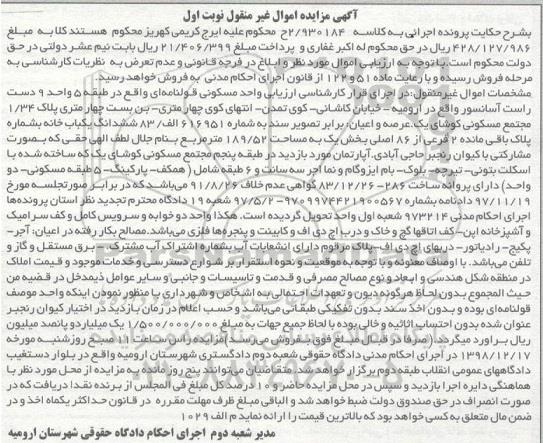 آگهی مزایده اموال غیر منقول نوبت اول
بشرح حکایت پرونده اجرائی به کلاسه ۲/۹۳۰۱۸۴ح محکوم علیه ایرج کریمی کهریز محکوم هستند کلا به مبلغ
۴۲۸/۱۲۷/۹۸۶ ریال در حق محکوم له اکبر غفاری و پرداخت مبلغ ۲۱/۴۰۶/۳۹۹ ریال بابت نیم عشر دولتی در حق
دولت محکوم است. با توجه به ارزیابی اموال مورد نظر و ابلاغ در فرجه قانونی و عدم تعرض به نظریات کارشناسی به
مرحله فروش رسیده و با رعایت ماده ۵۱ و ۱۲۲ از قانون اجرای احکام مدنی به فروش خواهد رسید.
مشخصات اموال غیر منقول: در اجرای قرار کارشناسی ارزیابی واحد مسکونی قولنامه‌ای واقع در طبقه ۵ واحد ۹ دست
راست آسانسور واقع در ارومیه - خیابان کاشانی- کوی تمدن- انتهای کوی چهار متری- بن بست چهار متری پلاک ۱/۳۴
مجتمع مسکونی کوشای یک عرصه و اعیان: برابر تصویر سند به شماره ۶۱۶۹۵۱ الف/۸۳ ششدانگ یکباب خانه بشماره
پلاک باقی مانده ۲ فرعی از ۸۶ اصلی بخش یک به مساحت ۱۸۹/۵۲ متر مربع بنام جلال لطف الهی حقی که بصورت
مشارکتی با کیوان رنجبر حاجی آبادی. آپارتمان مورد بازدید در طبقه پنجم مجتمع مسکونی کوشای یک که ساخته شده با
اسکلت بتونی- تیرچه- بلوک- بام ایزوگام و نما آجر سه سانت و ۶ طبقه شامل (همکف- پارکینگ- ۵ طبقه مسکونی- دو
واحد) دارای پروانه ساخت ۲۸۶-۸۳/۱۲/۲۶ گواهی عدم خلاف ۹۱/۸/۲۶ می‌باشد که در برابر صورتجلسه مورخ
۹۷/۱۱/۱۹ دادنامه بشماره ۹۷۰۹۹۷۴۴۲۱۹۰۰۵۶۷-۹۷/۵/۲ شعبه ۱۹ دادگاه محترم تجدید نظر استان پرونده‌ها
اجرای احکام مدنی ۹۷۳۲۱۴ شعبه اول واحد تحویل گردیده است. هکذا واحد دو خوابه و سرویس کامل و کف سرامیک
و آشپزخانه اپن- کف اتاقها گچ و خاک و درب اچ دی اف و کابینت و پنجره‌ها فلزی می‌باشد. مصالح بکار رفته در اعیان: آجر-
پکیج- رادیاتور- دربهای اچ دی اف- پلاک مرقوم دارای انشعابات آبی بشماره اشتراک آب مشترک - برق مستقل و گاز و
تلفن می‌باشد. با اوصاف معنونه و با توجه به موقعیت و نحوه استقرار بر شوارع دسترسی و خدمات موجود و قیمت املاک
در منطقه شکل هندسی و ابعاد و نوع مصالح مصرفی و قدمت و تاسیسات و جانبی و سایر عوامل ذیمدخل در قضیه من
حیث المجموع بدون لحاظ هرگونه دیون و تعهدات احتمالی به اشخاص و شهرداری با منظور نمودن اینکه واحد موصف
قولنامه‌ای بوده و بدون اخذ سند بدون تفکیکی طبقاتی می‌باشد و حسب اعلام در زمان بازدید در اختیار کیوان رنجبر
عنوان شده بدون احتساب اثاثیه و خالی بوده با لحاظ جمیع جهات به مبلغ ۱/۵۰۰/۰۰۰/۰۰۰ یک میلیارد و پانصد میلیون
ریال برآورد میگردد. (صرفا در قبال مبلغ فوق بفروش می‌رسد) مزایده از ساعت ۱۰ الی ۱۱ صبح روز شنبه مورخه
۱۳۹۸/۱۲/۱۷ در اجرای احکام مدنی دادگاه حقوقی شعبه دوم دادگستری شهرستان ارومیه واقع در بلوار دستغیب
دادگاههای عمومی انقلاب طبقه دوم برگزار خواهد شد. متقاضیان می‌توانند پنج روز مانده به مزایده از محل مورد نظر با
هماهنگی دایره اجرا بازدید و سپس در محل مزایده حاضر و ۱۰ درصد از مبلغ فی المجلس از برنده نقدا دریافت که در
صورت انصراف در حق صندوق دولت ضبط خواهد شد و الباقی مبلغ ظرف مهلت مقرره در قانون حداکثر یکماه اخذ و در
ضمن مال متعلق به کسی خواهد بود که بالاترین قیمت را ارائه نماید م الف ۱۰۲۹
مدیر شعبه دوم اجرای احکام دادگاه حقوقی شهرستان ارومیه